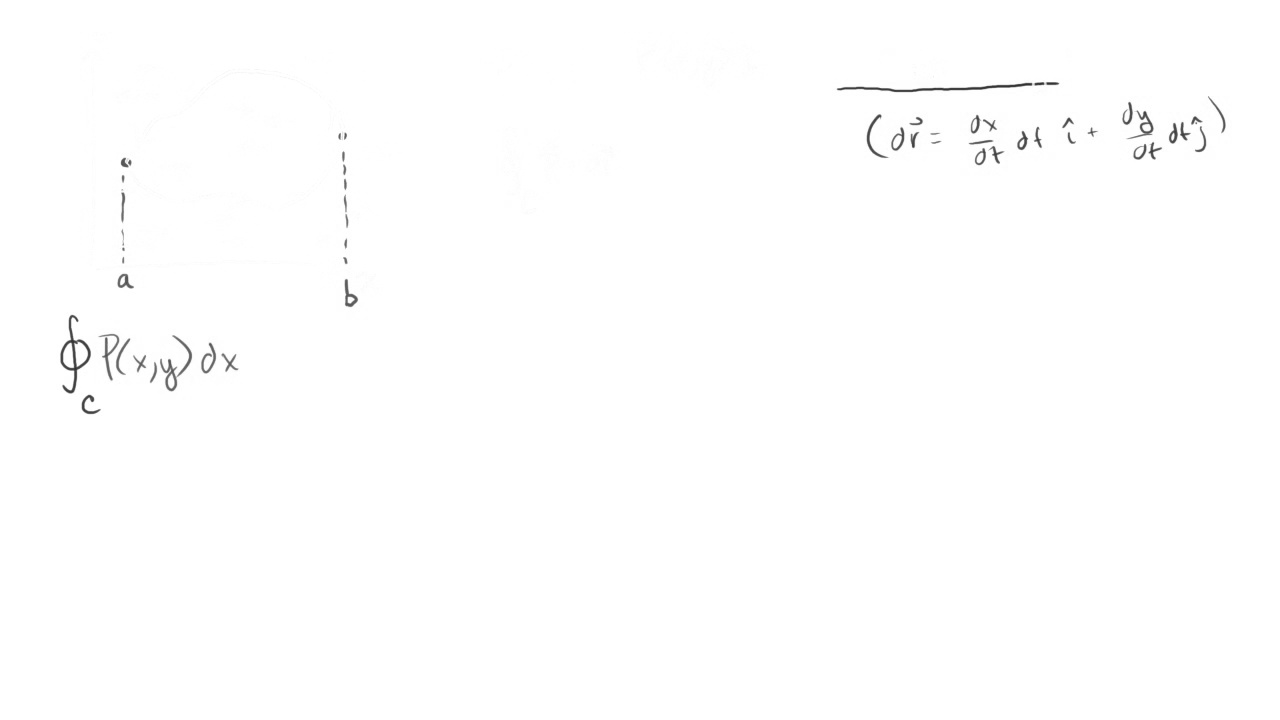 (d\vec{r} = \frac{dx}{dt} dt \hat{i} + \frac{dy}{dt} dt \hat{j})
a
b
\oint_C P(x,y) dx